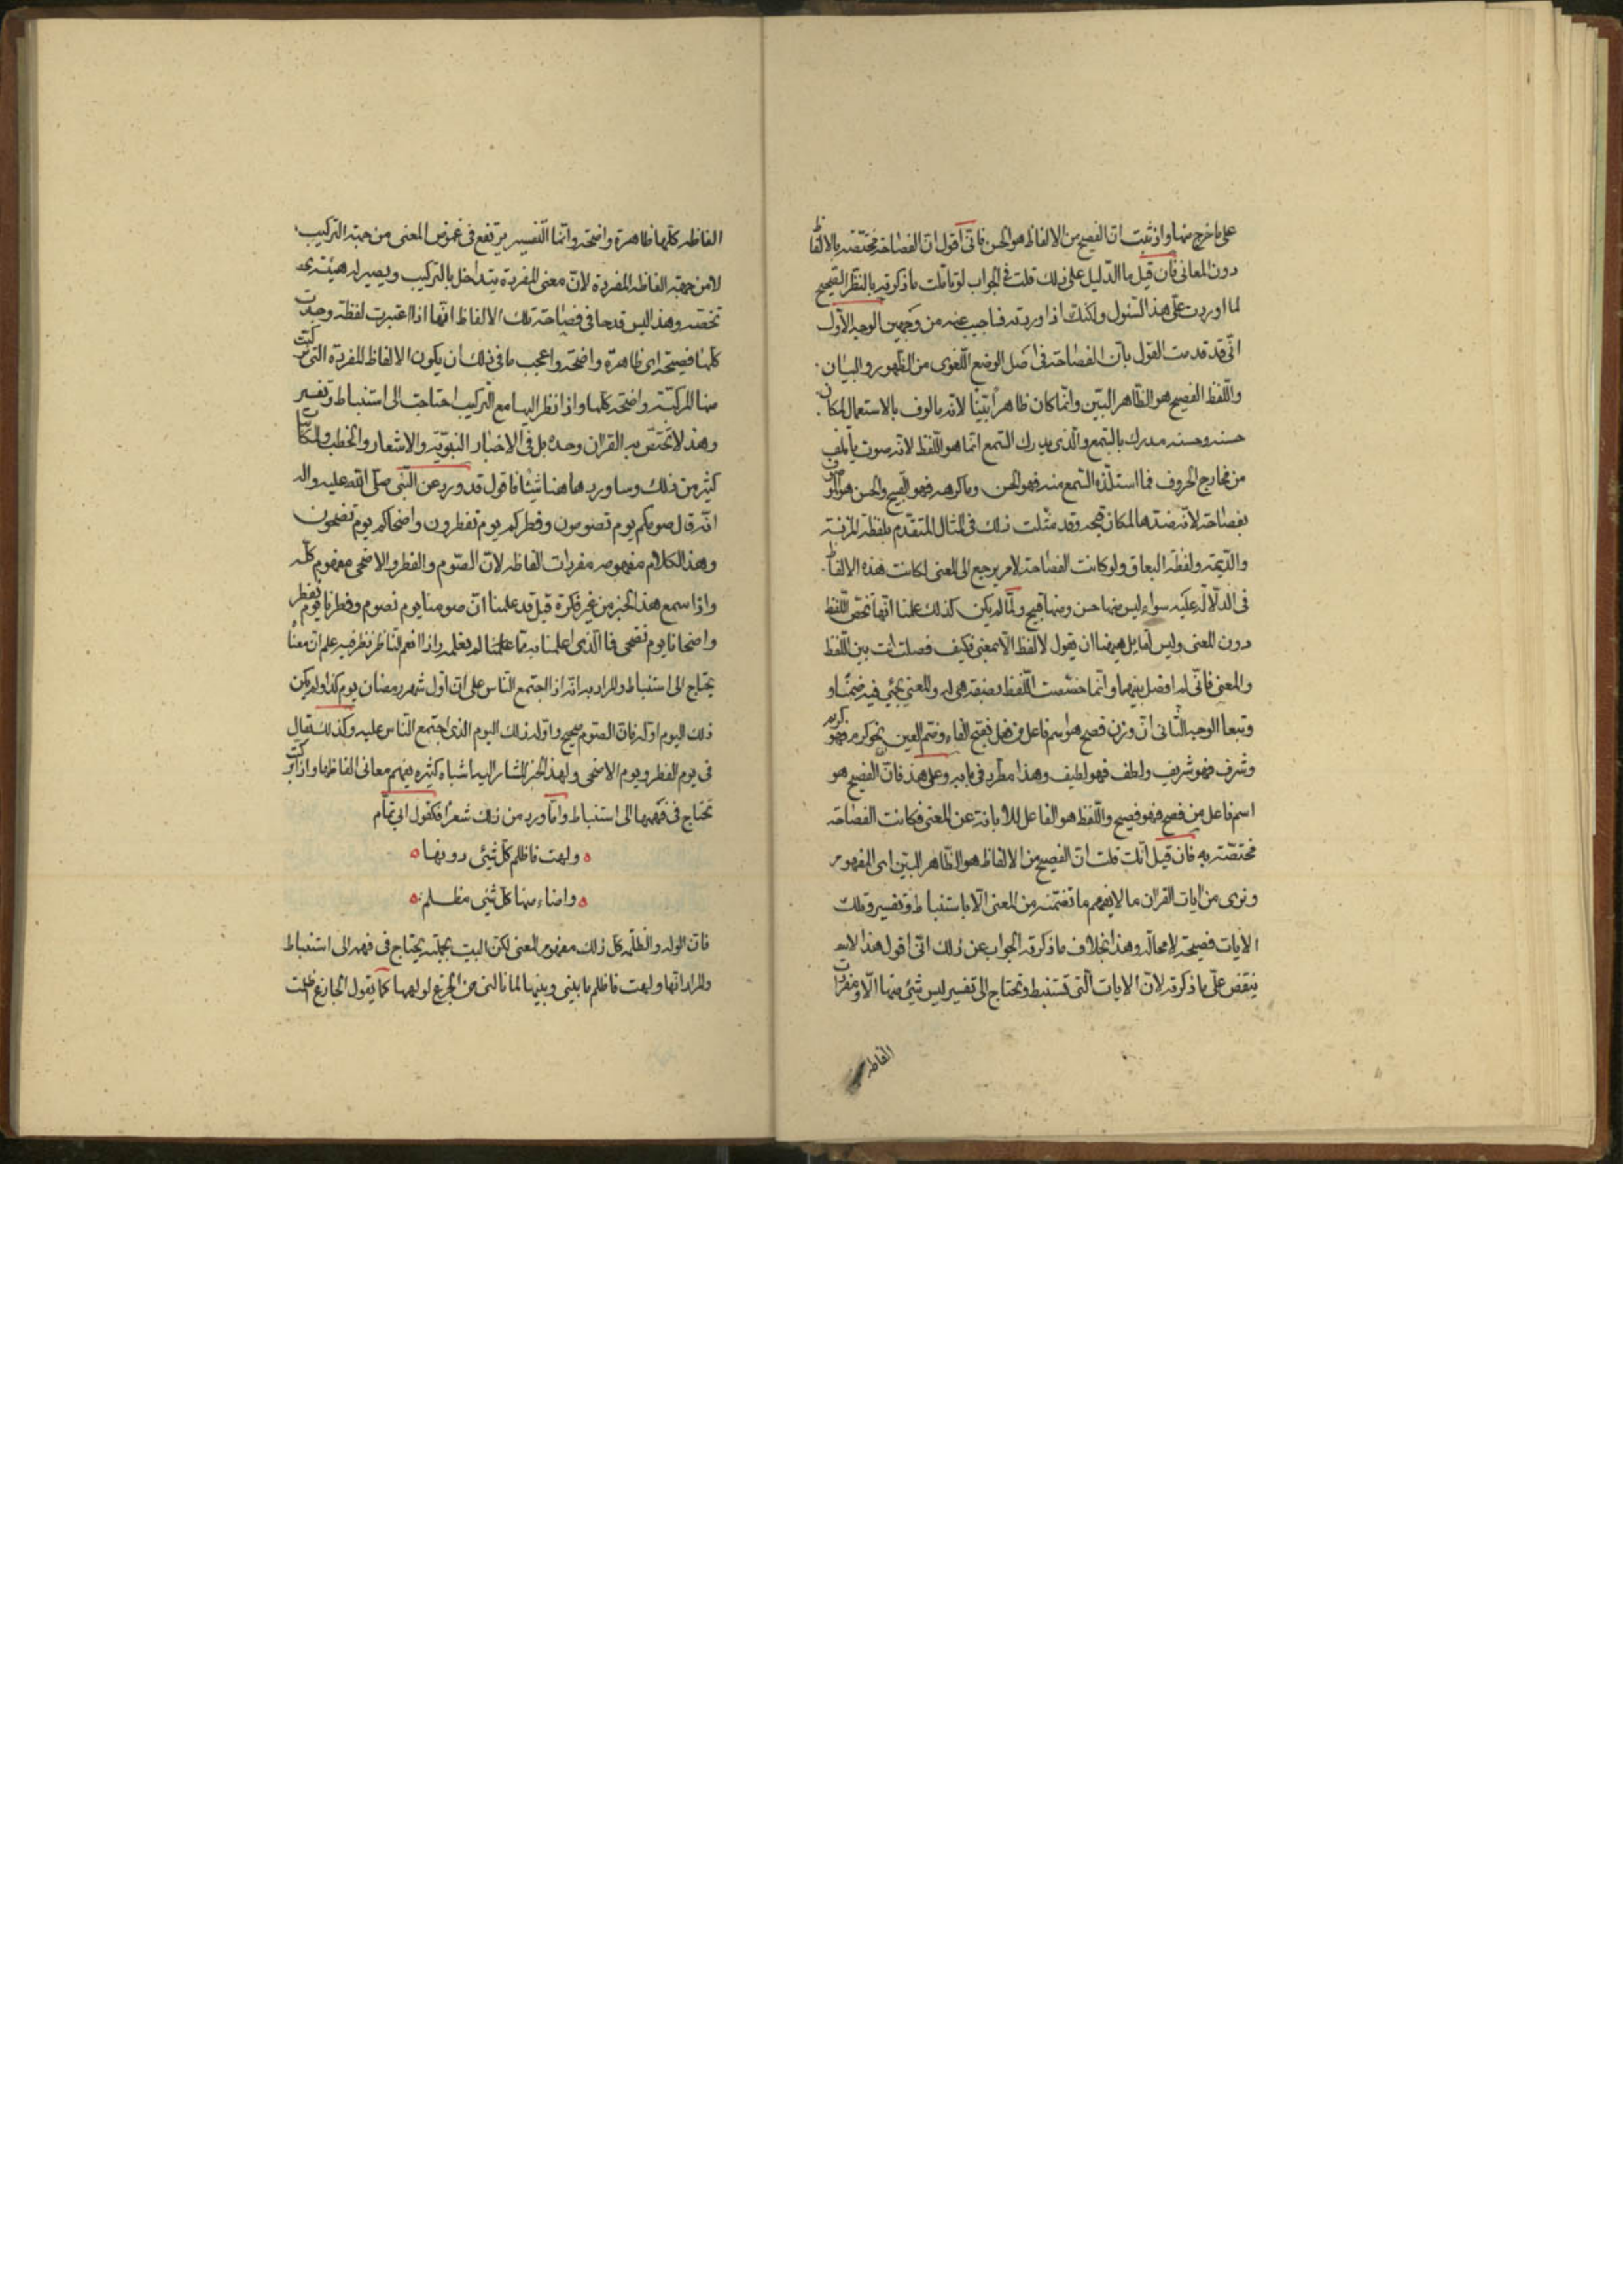 على ما خرج منها واذ ثبت ان الفصيح من الالفاظ هو الحسن فانى اقول ان الفصاحة مختصّة بالالفاظ
دون المعانى فان قيل ما الدّليل على ذلك قلت فى الجواب لو تاملت ما ذكرته بالنظر الصّحيح
لما اوردت علىّ هذا السّئول ولكنك اذا اوردته فاجيب عنه من وجهين الوجه الاوّل
انّى قد قدمت القول بانّ الفصاحة فى اصل الوضع اللّغوى من الظّهور والبيان
واللّفظ الفصيح هو الظّاهر البيّن وانّما كان ظاهراً بيّنا لانّه مالوف بالاستعمال لمكان
حسنه وحسنه مدرك بالسّمع والّذى يدرك السّمع انّما هو اللّفظ لانّه صوت يأتلف
من مخارج الحروف فما استلذّه السّمع منه فهو الحسن وما كرهه فهو القبيح والحسن هو الموصوف
بفصاحة لانّه ضدّها لمكان قبحه وقد مثّلت ذلك فى المثال المتقدّم بلفظة المزنة
والدّيمة ولفظة البعاق ولو كانت الفصاحة لامر يرجع الى المعنى لكانت هذه الالفاظ
فى الدّلالة عليه سواء ليس منها حسن ومنها قبيح ولمّا لم يكن كذلك علمنا انّها تخصّ اللّفظ
دون المعنى وليس لقايل ههنا ان يقول لا لفظ الّا بمعنى فكيف فصلت انت بين اللّفظ
والمعنى فانّى لم افصل بينهما وانّما خصّصت اللّفظ بصفة هى له والمعنى يجئ فيه ضمنًا و
وتبعا الوجه الثّانى انّ وزن فصيح هو اسم فاعل من فعل بفتح الفاء وضمّ العين نحو كرم فهو كريم
وشرف فهو شريف ولطف فهو لطيف وهذا مطّرد فى بابه وعلى هذا فانّ الفصيح هو
اسم فاعل من فصح فهو فصيح واللّفظ هو الفاعل للابانة عن المعنى فكانت الفصاحة
مختصّة به فان قيل انّك قلت انّ الفصيح من الالفاظ هو الظّاهر البيّن اى المفهوم
ونرى من ايات القران ما لا يفهم ما تضمّنه من المعنى الّا باستنباط وتفسير وتلك
الايات فصيحة لا محالة وهذا بخلاف ما ذكرته الجواب عن ذلك انّى اقول هذا لا
ينقض علىّ ما ذكرته لانّ الايات الّتى تستنبط وتحتاج الى تفسير ليس شئ منها الّا ومفردات
الفاظه
الفاظه كلّها ظاهرة واضحة وانّما التّفسير يرتفع فى غموض المعنى من جهة التركيب
لا من جهة الفاظه المفردة لانّ معنى المفردة يتداخل بالتركيب ويصير له هيئة
تخصّه وهذا ليس قدحا فى فصاحة تلك الالفاظ انّها اذا اعتبرت لفظة وجدت
كلّها فصيحة اى ظاهرة واضحة واعجب ما فى ذلك ان يكون الالفاظ المفردة التى تركبت
منها المركبة واضحة كلها واذا نظر اليها مع التركيب احتاجت الى استنباط وتفسير
وهذا لا يختصّ به القران وحده بل فى الاخبار النبويّة والاشعار والخطب والمكاتبات
كثير من ذلك وساورد هاهنا شيئا فاقول قد ورد عن النّبى صلّى الله عليه واله
انّه قال صومكم يوم تصومون وفطركم يوم تفطرون واضحاكم يوم تضحون
وهذا الكلام مفهومه مفردات الفاظه لانّ الصّوم والفطر والاضحى مفهوم كلّه
واذا سمع هذا الخبر من غير فكرة قيل قد علمنا انّ صومنا يوم نصوم وفطرنا يوم نفطر
واضحانا يوم نضحى فما الّذى اعلمنا به ممّا لم نعلمه واذا انعم النّاظر نظر فيه علم انّ معناه
يحتاج الى استنباط والمراد به انّه اذا اجتمع النّاس على انّ اوّل شهر رمضان يوم كذا ولم يكن
ذلك اليوم اوّله فانّ الصّوم صحيح واوّله ذلك اليوم الذى اجتمع النّاس عليه وكذلك يقال
فى يوم الفطر ويوم الاضحى ولهذا الخبر المشار اليه اشباه كثيره يفهم معانى الفاظها واذا تركبت
تحتاج فى فهمها الى استنباط وامّا ورد من ذلك شعرا فكقول ابى تمّام
ولهت فاظلم كلّ شئى دونها
واضاء منها كلّ شئى مظلم
فانّ الوله والظّلمه كلّ ذلك مفهوم المعنى لكن البيت بجملته يحتاج فى فهمه الى استنباط
والمراد انّها ولهت فاظلم ما بينى وبينها لما نالنى من الجزع لولهها كما يقول الجازع اظلمت